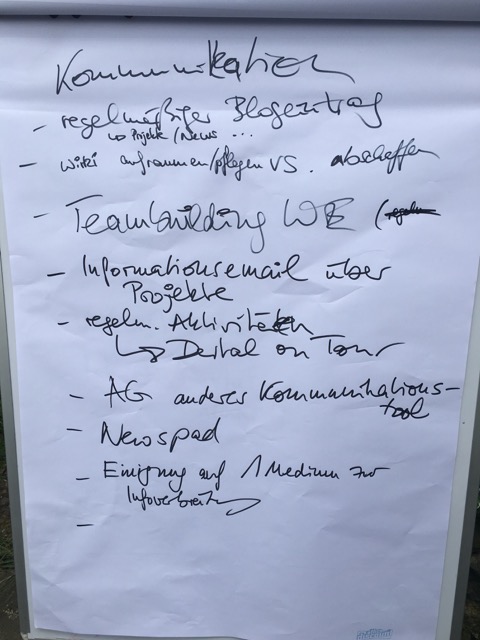 Kommunikation
- regelmäßiger Blogeintrag
↳ Projekte / News ...
- Wiki aufräumen/pflegen VS. abschaffen
- Teambuilding WE (
- Informationsemail über
Projekte
- regelm. Aktivitäten
↳ Digital on Tour
- AG anderes Kommunikations-
tool
- Newspad
- Einigung auf 1 Medium zur
Infoverbreitung
-